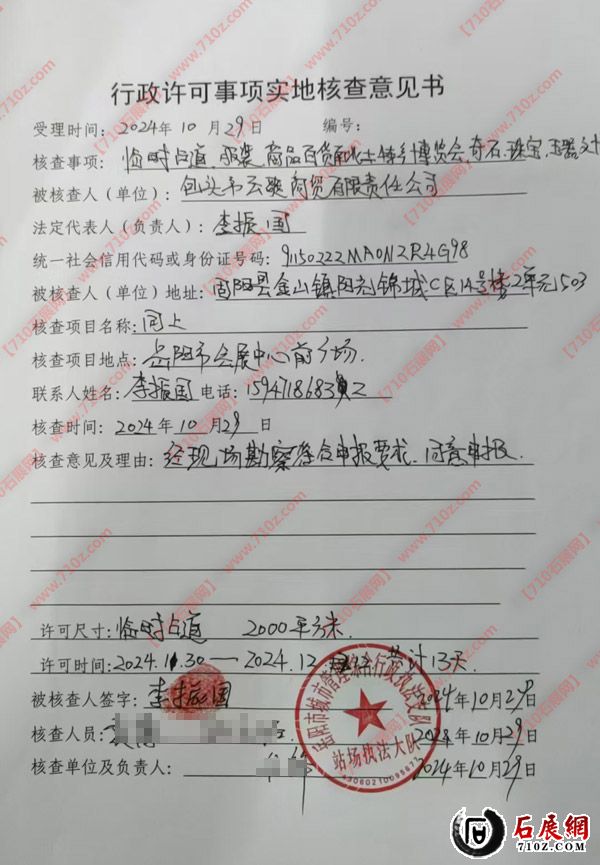 行政许可事项实地核查意见书
受理时间: 2024年10月29日 编号:
核查事项: 临时占道、服装、商品百货 博览会、奇石、珠宝、玉器文
被核查人（单位）: 包头市云 商贸有限责任公司
法定代表人（负责人）: 李振国
统一社会信用代码或身份证号码: 91150222MA0N2R4G98
被核查人（单位）地址: 固阳县金山镇阳光锦城C区14号楼2单元503
核查项目名称: 同上
核查项目地点: 岳阳市会展中心前广场.
联系人姓名: 李振国 电话: 1594718683 2
核查时间: 2024年10月29日
核查意见及理由: 经现场勘察符合申报要求.同意申报.
许可尺寸: 临时占道 2000平方米.
许可时间: 2024.11.30—2024.12. 共计13天.
被核查人签字: 李振国 2024年10月29日
核查人员: 2024年10月29日
核查单位及负责人: 2024年10月29日
岳阳市城市管理综合行政执法支队
站场执法大队
石展網
710z.com
【710石展网】www.710z.com